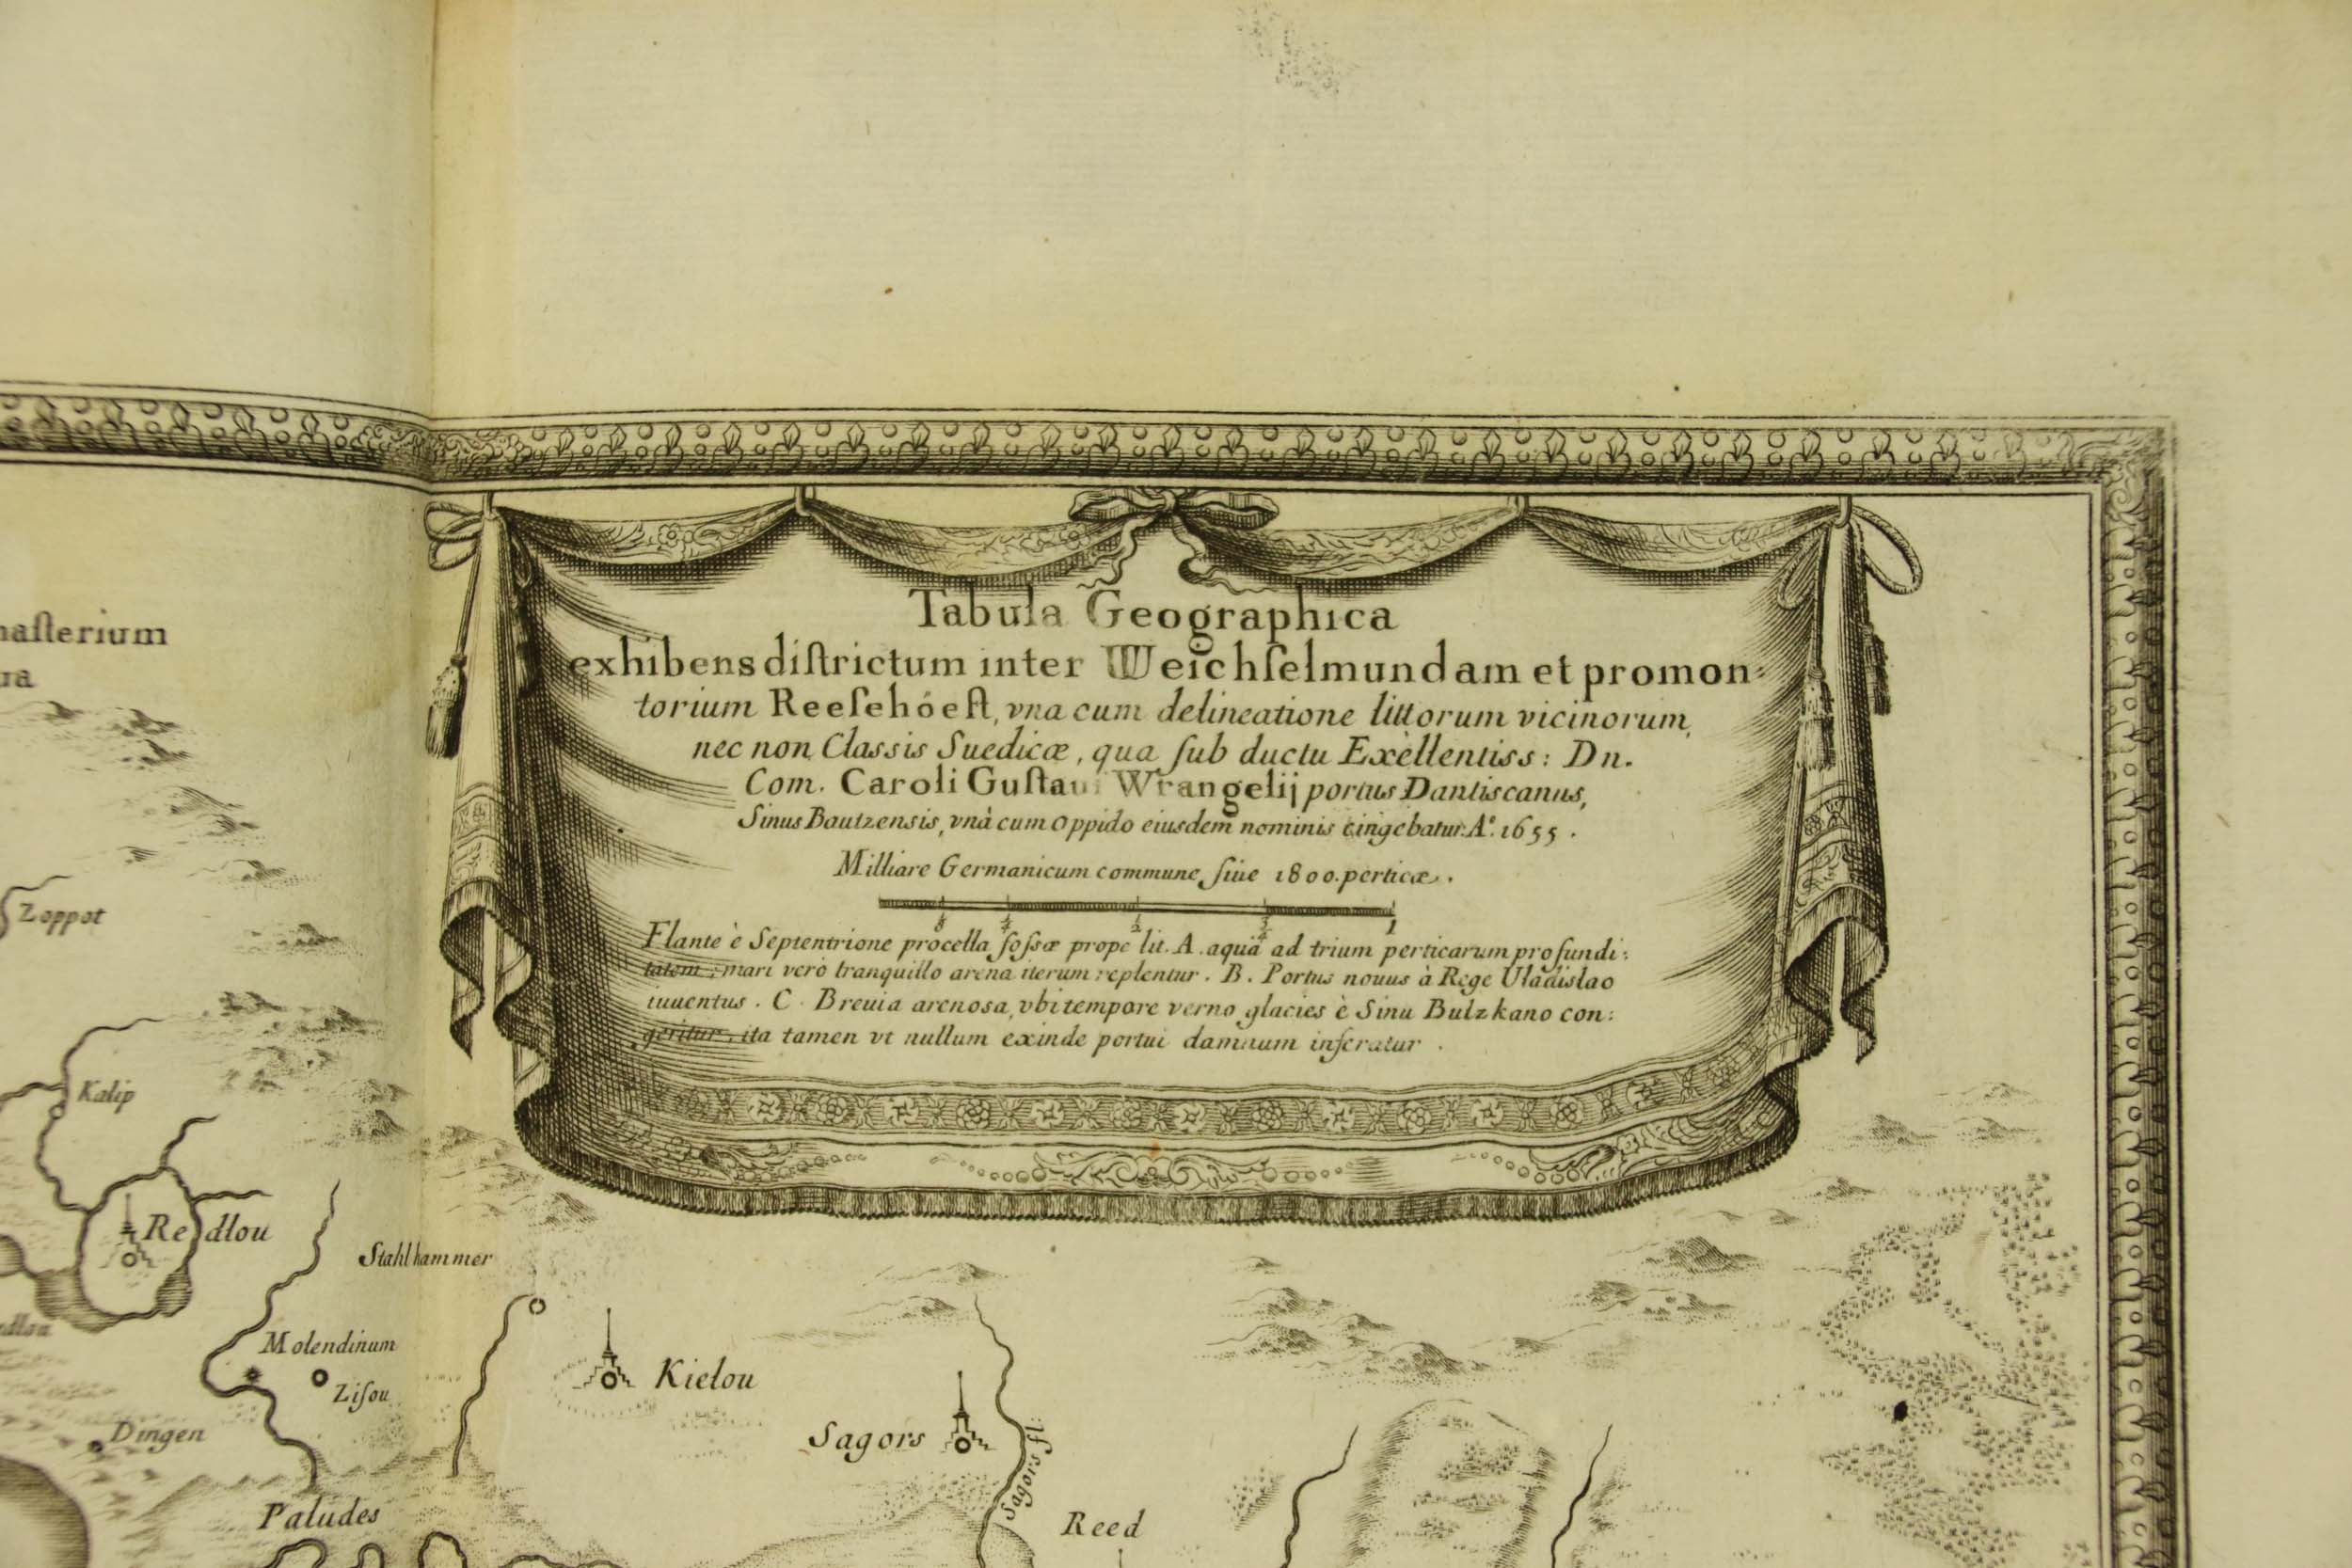 Tabula Geographica
exhibens diſtrictum inter Weichſelmundam et promon:
torium Reeſehóeſt, vna cum delineatione littorum vicinorum,
nec non Classis Suedicæ, qua ſub ductu Exèllentiss: Dn.
Com. Caroli Guſtaui Wrangelij portus Dantiscanus,
Sinus Bautzensis, vnà cum oppido eiusdem nominis cingebatur. Aº. 1655.
Milliare Germanicum commune, ſiue 1800. perticæ.
1/8 1/4 1/2 3/4 1
Flante è Septentrione procella foſsæ prope lit. A. aquâ ad trium perticarum profundi:
tatem; mari verò tranquillo arena iterum replentur. B. Portus nouus à Rege Uladislao
iuuentus. C. Breuia arenosa, vbi tempore verno glacies è Sinu Bulzkano con:
geritur, ita tamen vt nullum exinde portui damnum inferatur.
naſterium
ua
Zoppot
Kalip
Redlou
Stahlhammer
Molendinum
Ziſou
Dingen
Kielou
Sagors
Sagors fl:
Paludes
Reed